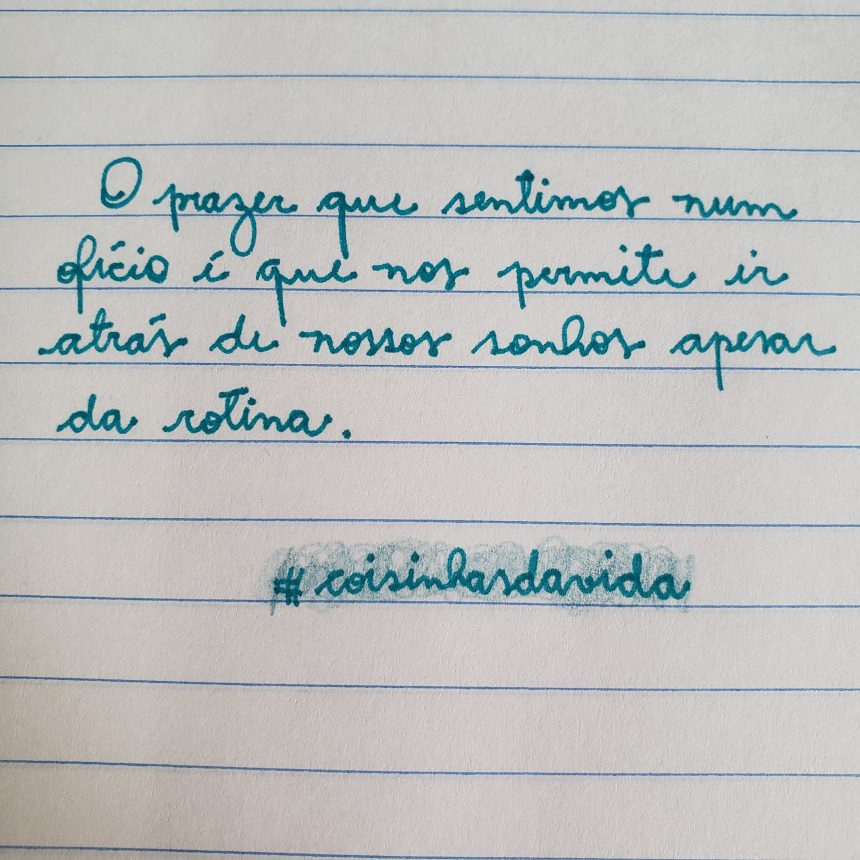 O prazer que sentimos num
ofício é que nos permite ir
atrás de nossos sonhos apesar
da rotina.
#coisinhasdavida